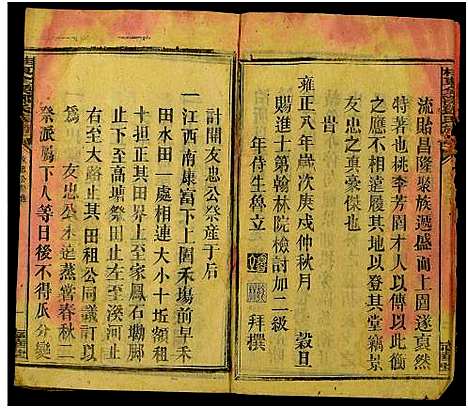 流貽昌隆聚族遞盛而上圍遂哀然
特著也桃李芳園才人以傳以此衡
之應不相遠履其地以登其堂窺景
之真豪傑也
旹
雍正八年歲次庚戌仲秋月 穀旦
賜進士第翰林院檢討加二級
年侍生魯立 拜撰
計開友忠公祭產于后
一江西南康富下上圍禾塲前早禾
田水田一處相連大小十坵額租
十担正其田界上至家鳳石塝脚
下止至高塘祭田止左至深河止
右至大路止其田租公同議訂以
為 友忠公永遠蒸嘗春秋二
祭派屬下人等日後不得瓜分變